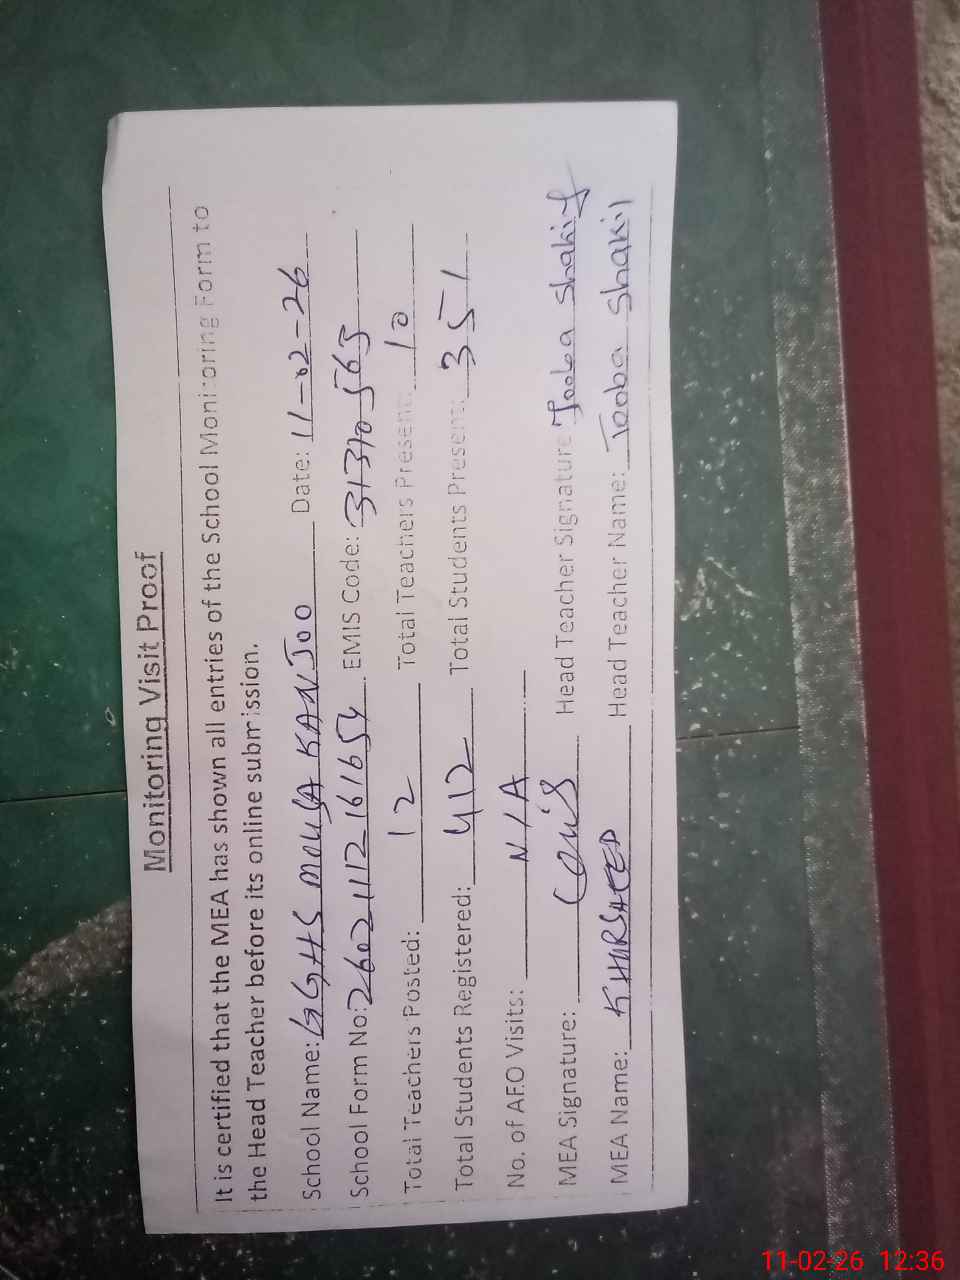 Monitoring Visit Proof
It is certified that the MEA has shown all entries of the School Monitoring Form to
the Head Teacher before its online submission.
School Name: GGHS MOUZA KANJOO Date: 11-02-26
School Form No: 26021112161654 EMIS Code: 31370565
Total Teachers Posted: 12 Total Teachers Present: 10
Total Students Registered: 412 Total Students Present: 351
No. of AEO Visits: N/A
MEA Signature: Head Teacher Signature Tooba Shakil
MEA Name: KHURSHEED Head Teacher Name: Tooba Shakil
11-02-26 12:36